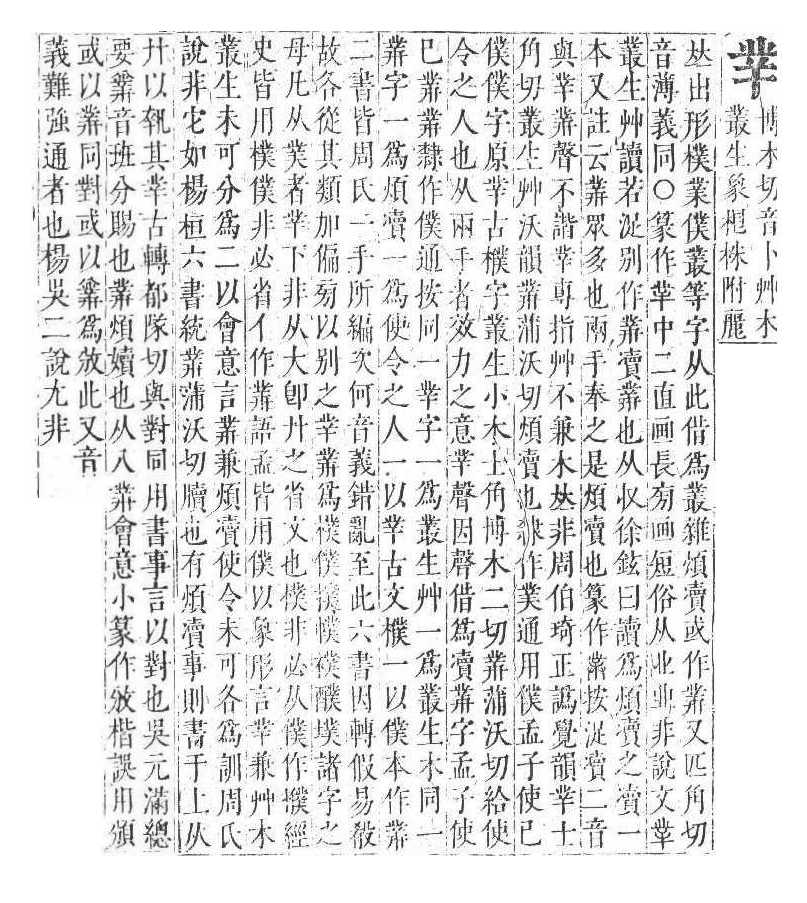 丵
博木切音卜艸木
叢生象柤株附麗
𠀎出形樸業僕叢等字从此借爲叢雜煩瀆或作菐又匹角切
音薄義同○篆作丵中二直画長㫄画短俗从业𠀎非說文丵
叢生艸讀若浞别作菐瀆菐也从収徐鉉曰讀爲煩瀆之瀆一
本又註云菐眾多也兩手奉之是煩瀆也篆作菐按浞瀆二音
與丵菐聲不諧丵專指艸不兼木𠀎非周伯琦正譌覺韻丵士
角切叢生艸沃韻菐蒲沃切煩瀆也隸作菐通用僕孟子使已
僕僕字原丵古樸字叢生小木士角博木二切菐蒲沃切給使
令之人也从兩手者效力之意丵聲因聲借爲瀆菐字孟子使
已菐菐隸作僕通按同一丵字一爲叢生艸一爲叢生木同一
菐字一爲煩瀆一爲使令之人一以丵古文樸一以僕本作菐
二書皆周氏一手所編次何音義錯亂至此六書因轉假易殽
故各從其類加偏㫄以别之丵菐爲樸僕撲幞襆醭墣諸字之
母凡从菐者丵下非从大卽廾之省文也樸非必从僕作撲經
史皆用樸僕非必省亻作菐語孟皆用僕以象形言丵兼艸木
叢生未可分爲二以會意言菐兼煩瀆使令未可各爲訓周氏
說非它如楊桓六書統菐蒲沃切牘也有煩瀆事則書于上从
廾以執其丵古轉都隊切與對同用書事言以對也吳元滿總
要𢍱音班分賜也菐煩嬻也从八菐會意小篆作攽楷誤用頒
或以菐同對或以𢍱爲攽此又音
義難強通者也楊吳二說尢非